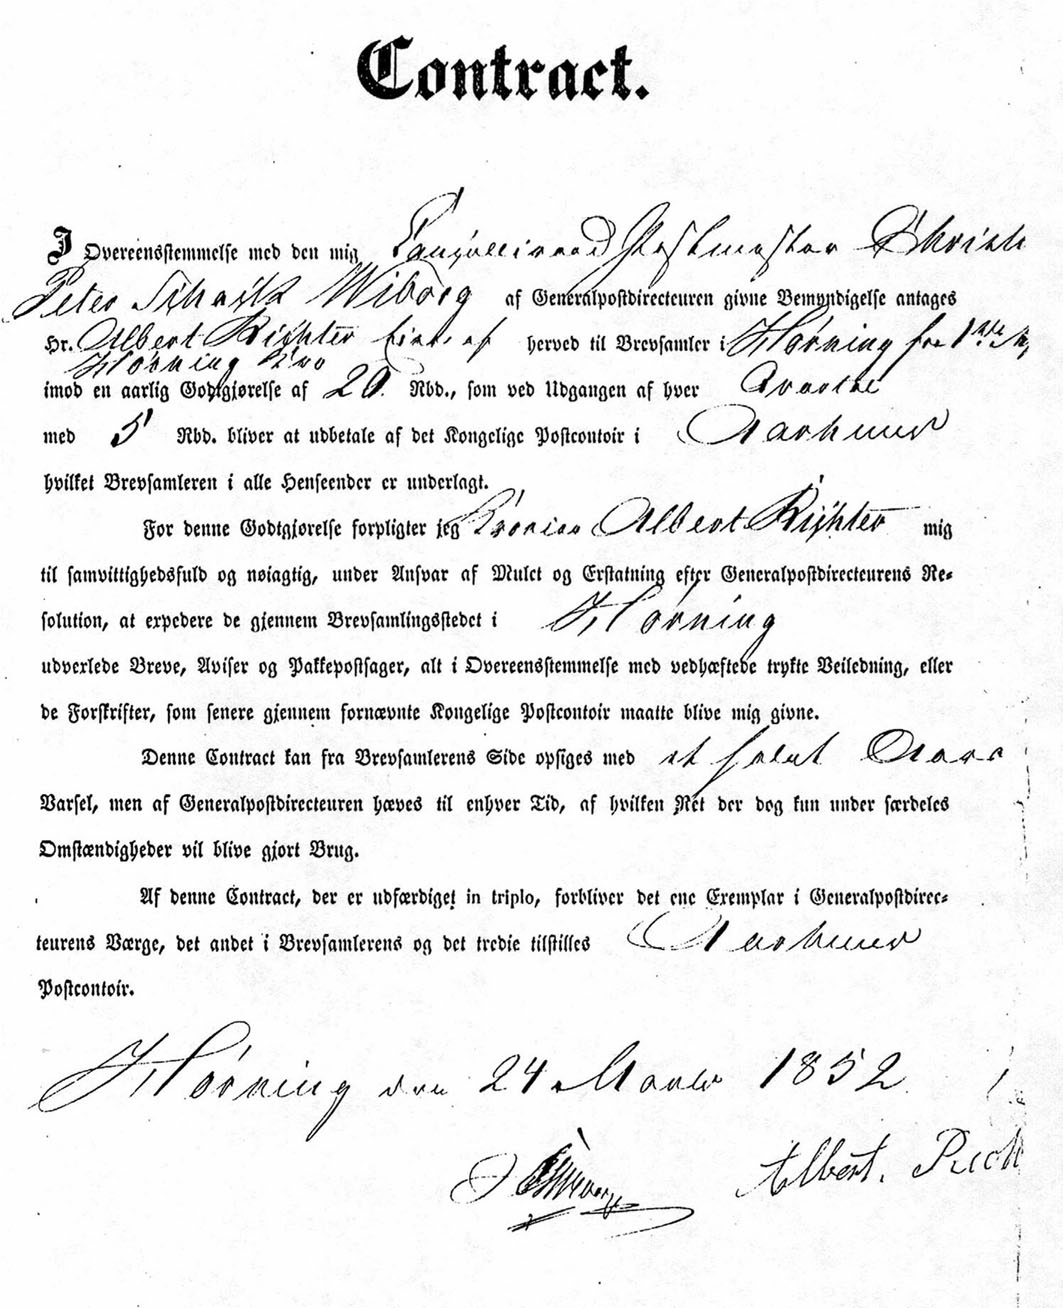 Contract.
I Overeensstemmelse med den mig Cancelliraad Postmester Christi
Peter Wiborg af Generalpostdirecteuren givne Bemyndigelse antages
Hr. Albert Richter Eier af herved til Brevsamler i Hørning fra 1
Hørning Kro
imod en aarlig Godtgjørelse af 20 Rbd., som ved Udgangen af hver
med 5 Rbd. bliver at udbetale af det Kongelige Postcontoir i Aarhuus
hvilket Brevsamleren i alle Henseender er underlagt.
For denne Godtgjørelse forpligter jeg Kroeier Albert Richter mig
til samvittighedsfuld og nøiagtig, under Ansvar af Mulct og Erstatning efter Generalpostdirecteurens Re-
solution, at expedere de gjennem Brevsamlingsstedet i Hørning
udvexlede Breve, Aviser og Pakkepostsager, alt i Overeensstemmelse med vedhæftede trykte Veiledning, eller
de Forskrifter, som senere gjennem fornævnte Kongelige Postcontoir maatte blive mig givne.
Denne Contract kan fra Brevsamlerens Side opsiges med et halvt Aars
Varsel, men af Generalpostdirecteuren hæves til enhver Tid, af hvilken Ret der dog kun under særdeles
Omstændigheder vil blive gjort Brug.
Af denne Contract, der er udfærdiget in triplo, forbliver det ene Exemplar i Generalpostdirec-
teurens Værge, det andet i Brevsamlerens og det tredie tilstilles Aarhuus
Postcontoir.
Hørning den 24 Marts 1852
Albert. Rich